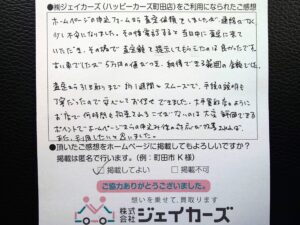 ●㈱ジェイカーズ(ハッピーカーズ町田店)をご利用になられたご感想
ホームページの申込フォームから査定依頼をしましたが、連絡がなく
少し不安になりました。その後電話すると当日中に査定に来て
いただき、その場で査定額を提示してもらえたのは良かったです。
古い車でしたが5万円の値がつき、納得できる範囲の金額では
査定から引き取りまで約1週間とスムーズで、手続の説明も
丁寧だったので安心してお任せできました。大手買取店のように
お店で何時間も拘束されることがないのは大変評価できる
ポイントで
また利用したいと思いました。
●頂いたご感想をホームページに掲載してもよろしいですか?
掲載は匿名で行います。(例:町田市 K様)
掲載してよい 掲載不可
ご協力ありがとうございました。
想いを乗せて、買取ります
株式会社 ジェイカーズ